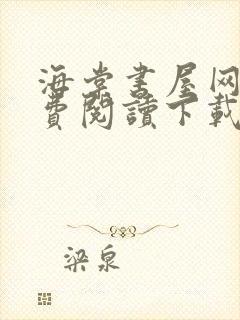 海棠書屋网
費閱讀下載
梁泉